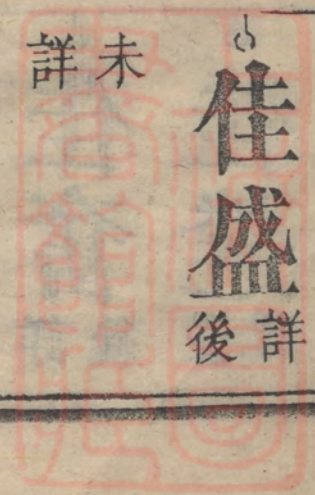 佳盛詳後
未詳